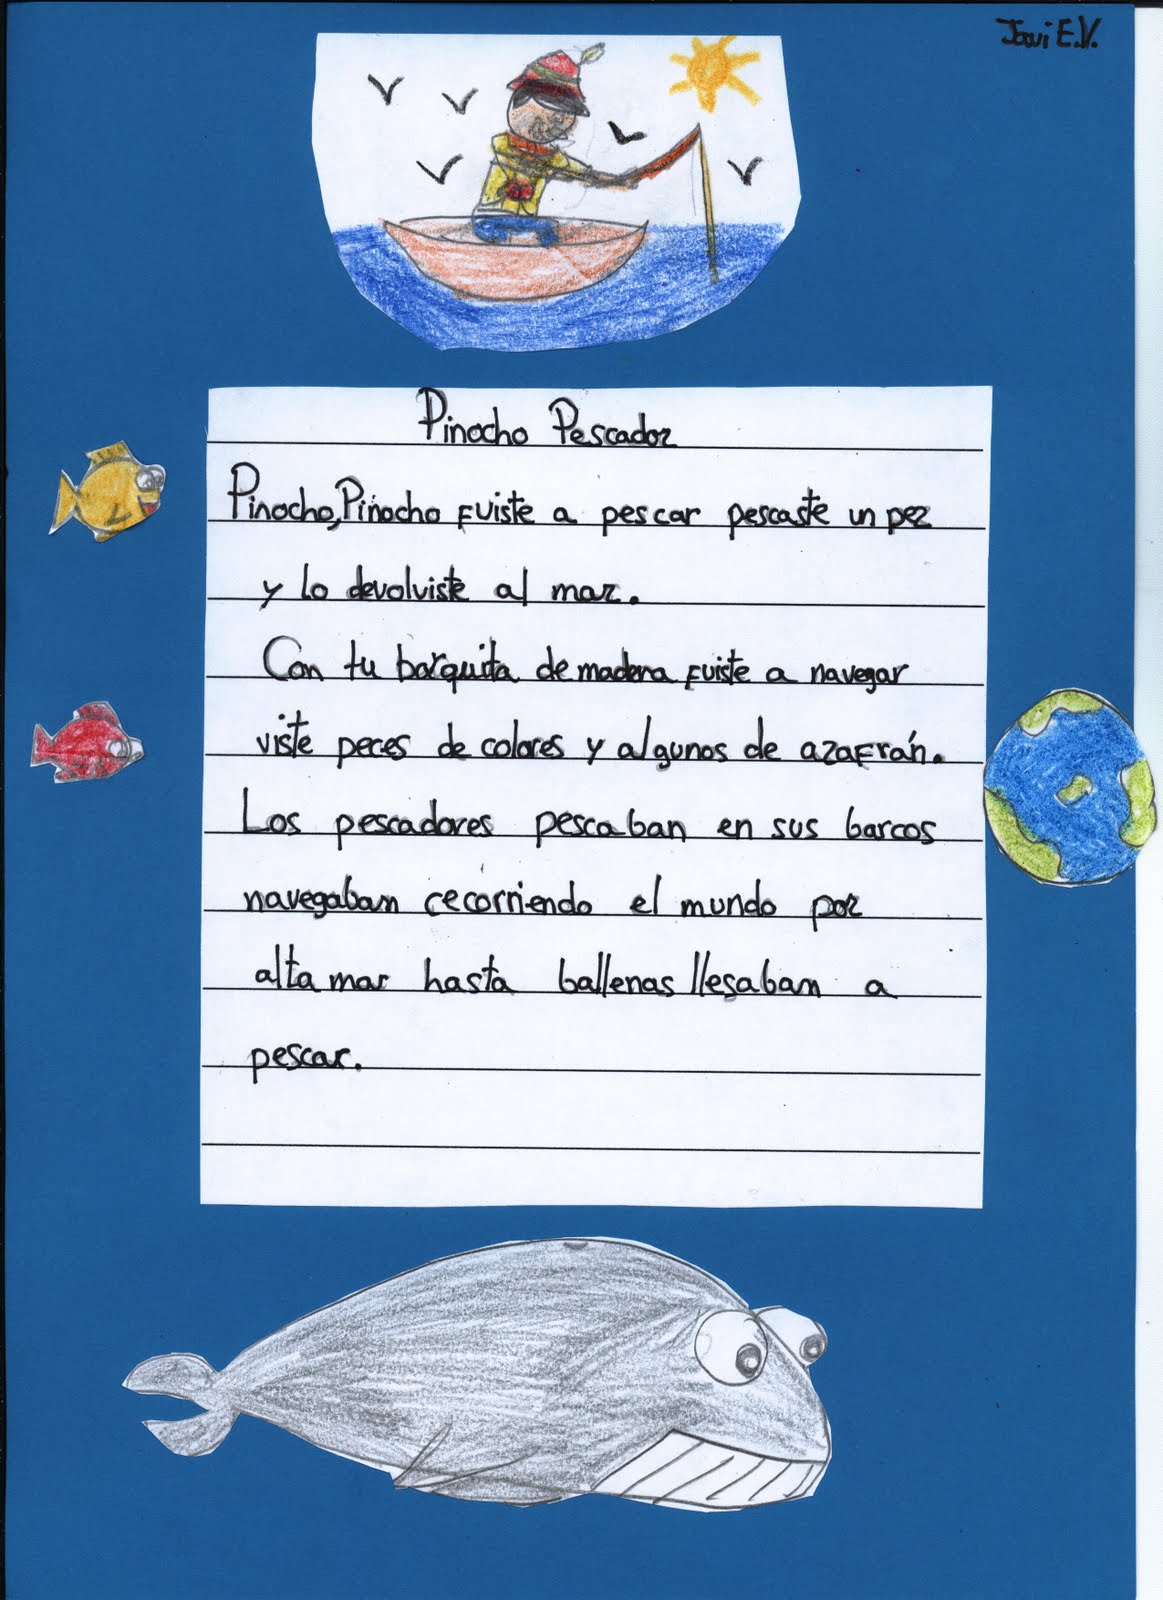 Javi E.V.
Pinocho Pescador
Pinocho, Pinocho fuiste a pescar pescaste un pez
y lo devolviste al mar.
Con tu barquita de madera fuiste a navegar
viste peces de colores y algunos de azafrán.
Los pescadores pescaban en sus barcos
navegaban recorriendo el mundo por
alta mar hasta ballenas llegaban a
pescar.